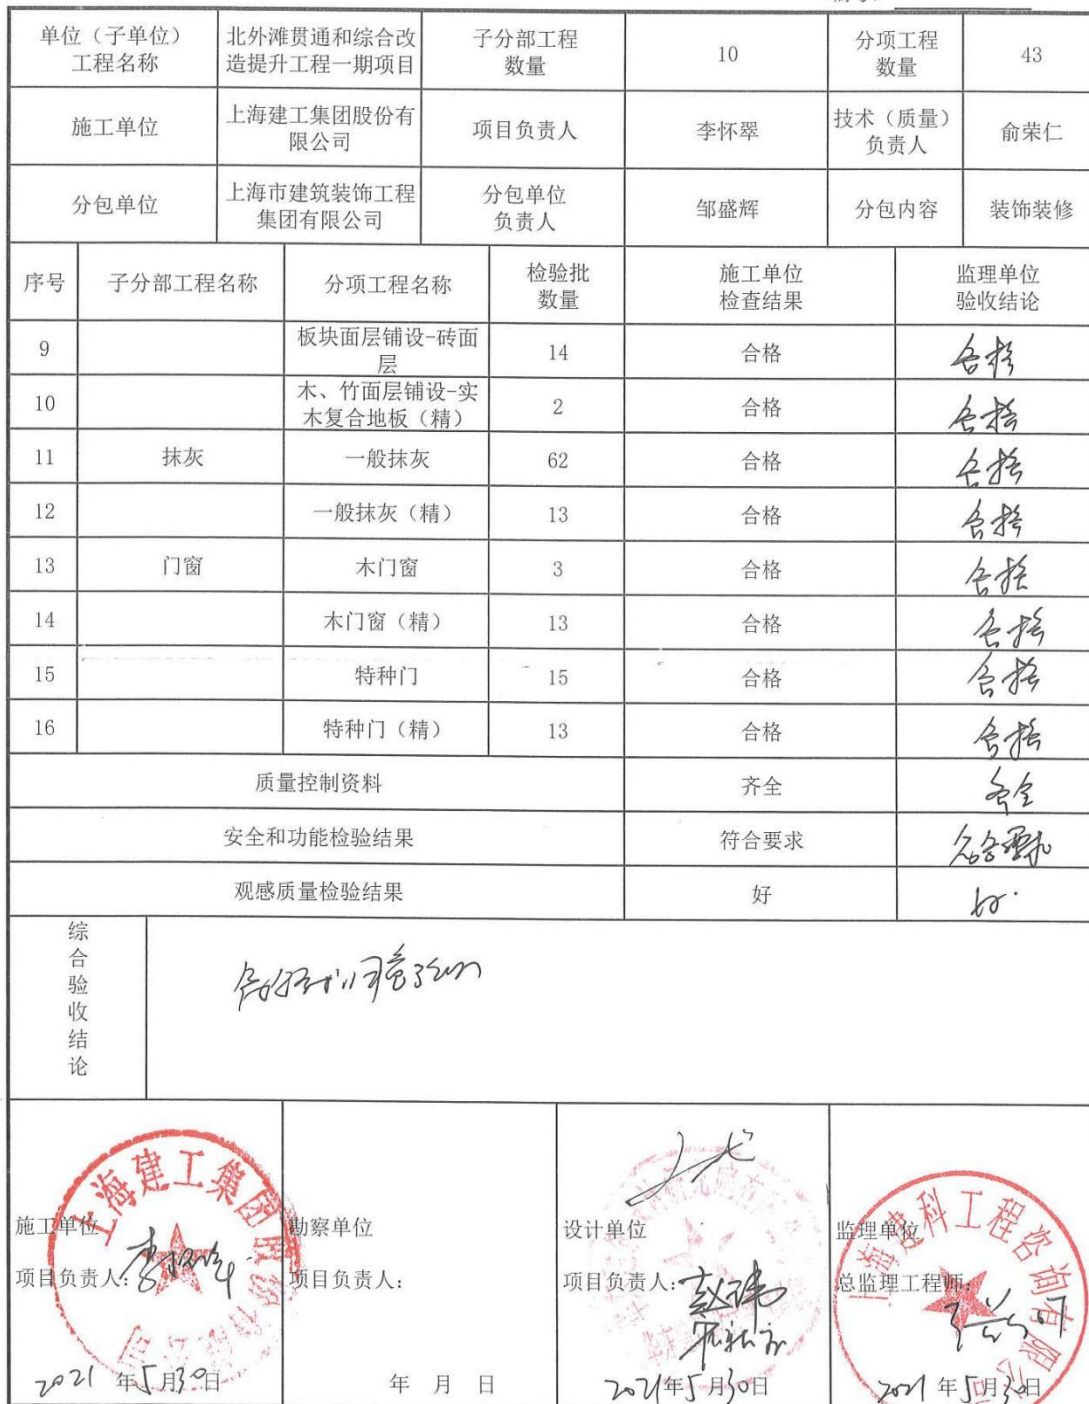 单位（子单位）
工程名称
北外滩贯通和综合改
造提升工程一期项目
子分部工程
数量
10
分项工程
数量
43
施工单位
上海建工集团股份有
限公司
项目负责人
李怀翠
技术（质量）
负责人
俞荣仁
分包单位
上海市建筑装饰工程
集团有限公司
分包单位
负责人
邹盛辉
分包内容
装饰装修
序号
子分部工程名称
分项工程名称
检验批
数量
施工单位
检查结果
监理单位
验收结论
9
板块面层铺设-砖面
层
14
合格
合格
10
木、竹面层铺设-实
木复合地板（精）
2
合格
合格
11
抹灰
一般抹灰
62
合格
合格
12
一般抹灰（精）
13
合格
合格
13
门窗
木门窗
3
合格
合格
14
木门窗（精）
13
合格
合格
15
特种门
15
合格
合格
16
特种门（精）
13
合格
合格
质量控制资料
齐全
齐全
安全和功能检验结果
符合要求
符合要求
观感质量检验结果
好
好.
综
合
验
收
结
论
上海建工集团股份有限公司
施工单位
项目负责人:
2021 年5月30日
勘察单位
项目负责人:
年 月 日
设计单位
项目负责人:
2021年5月30日
上海建科工程咨询有限公司
监理单位
总监理工程师:
2021年5月30日